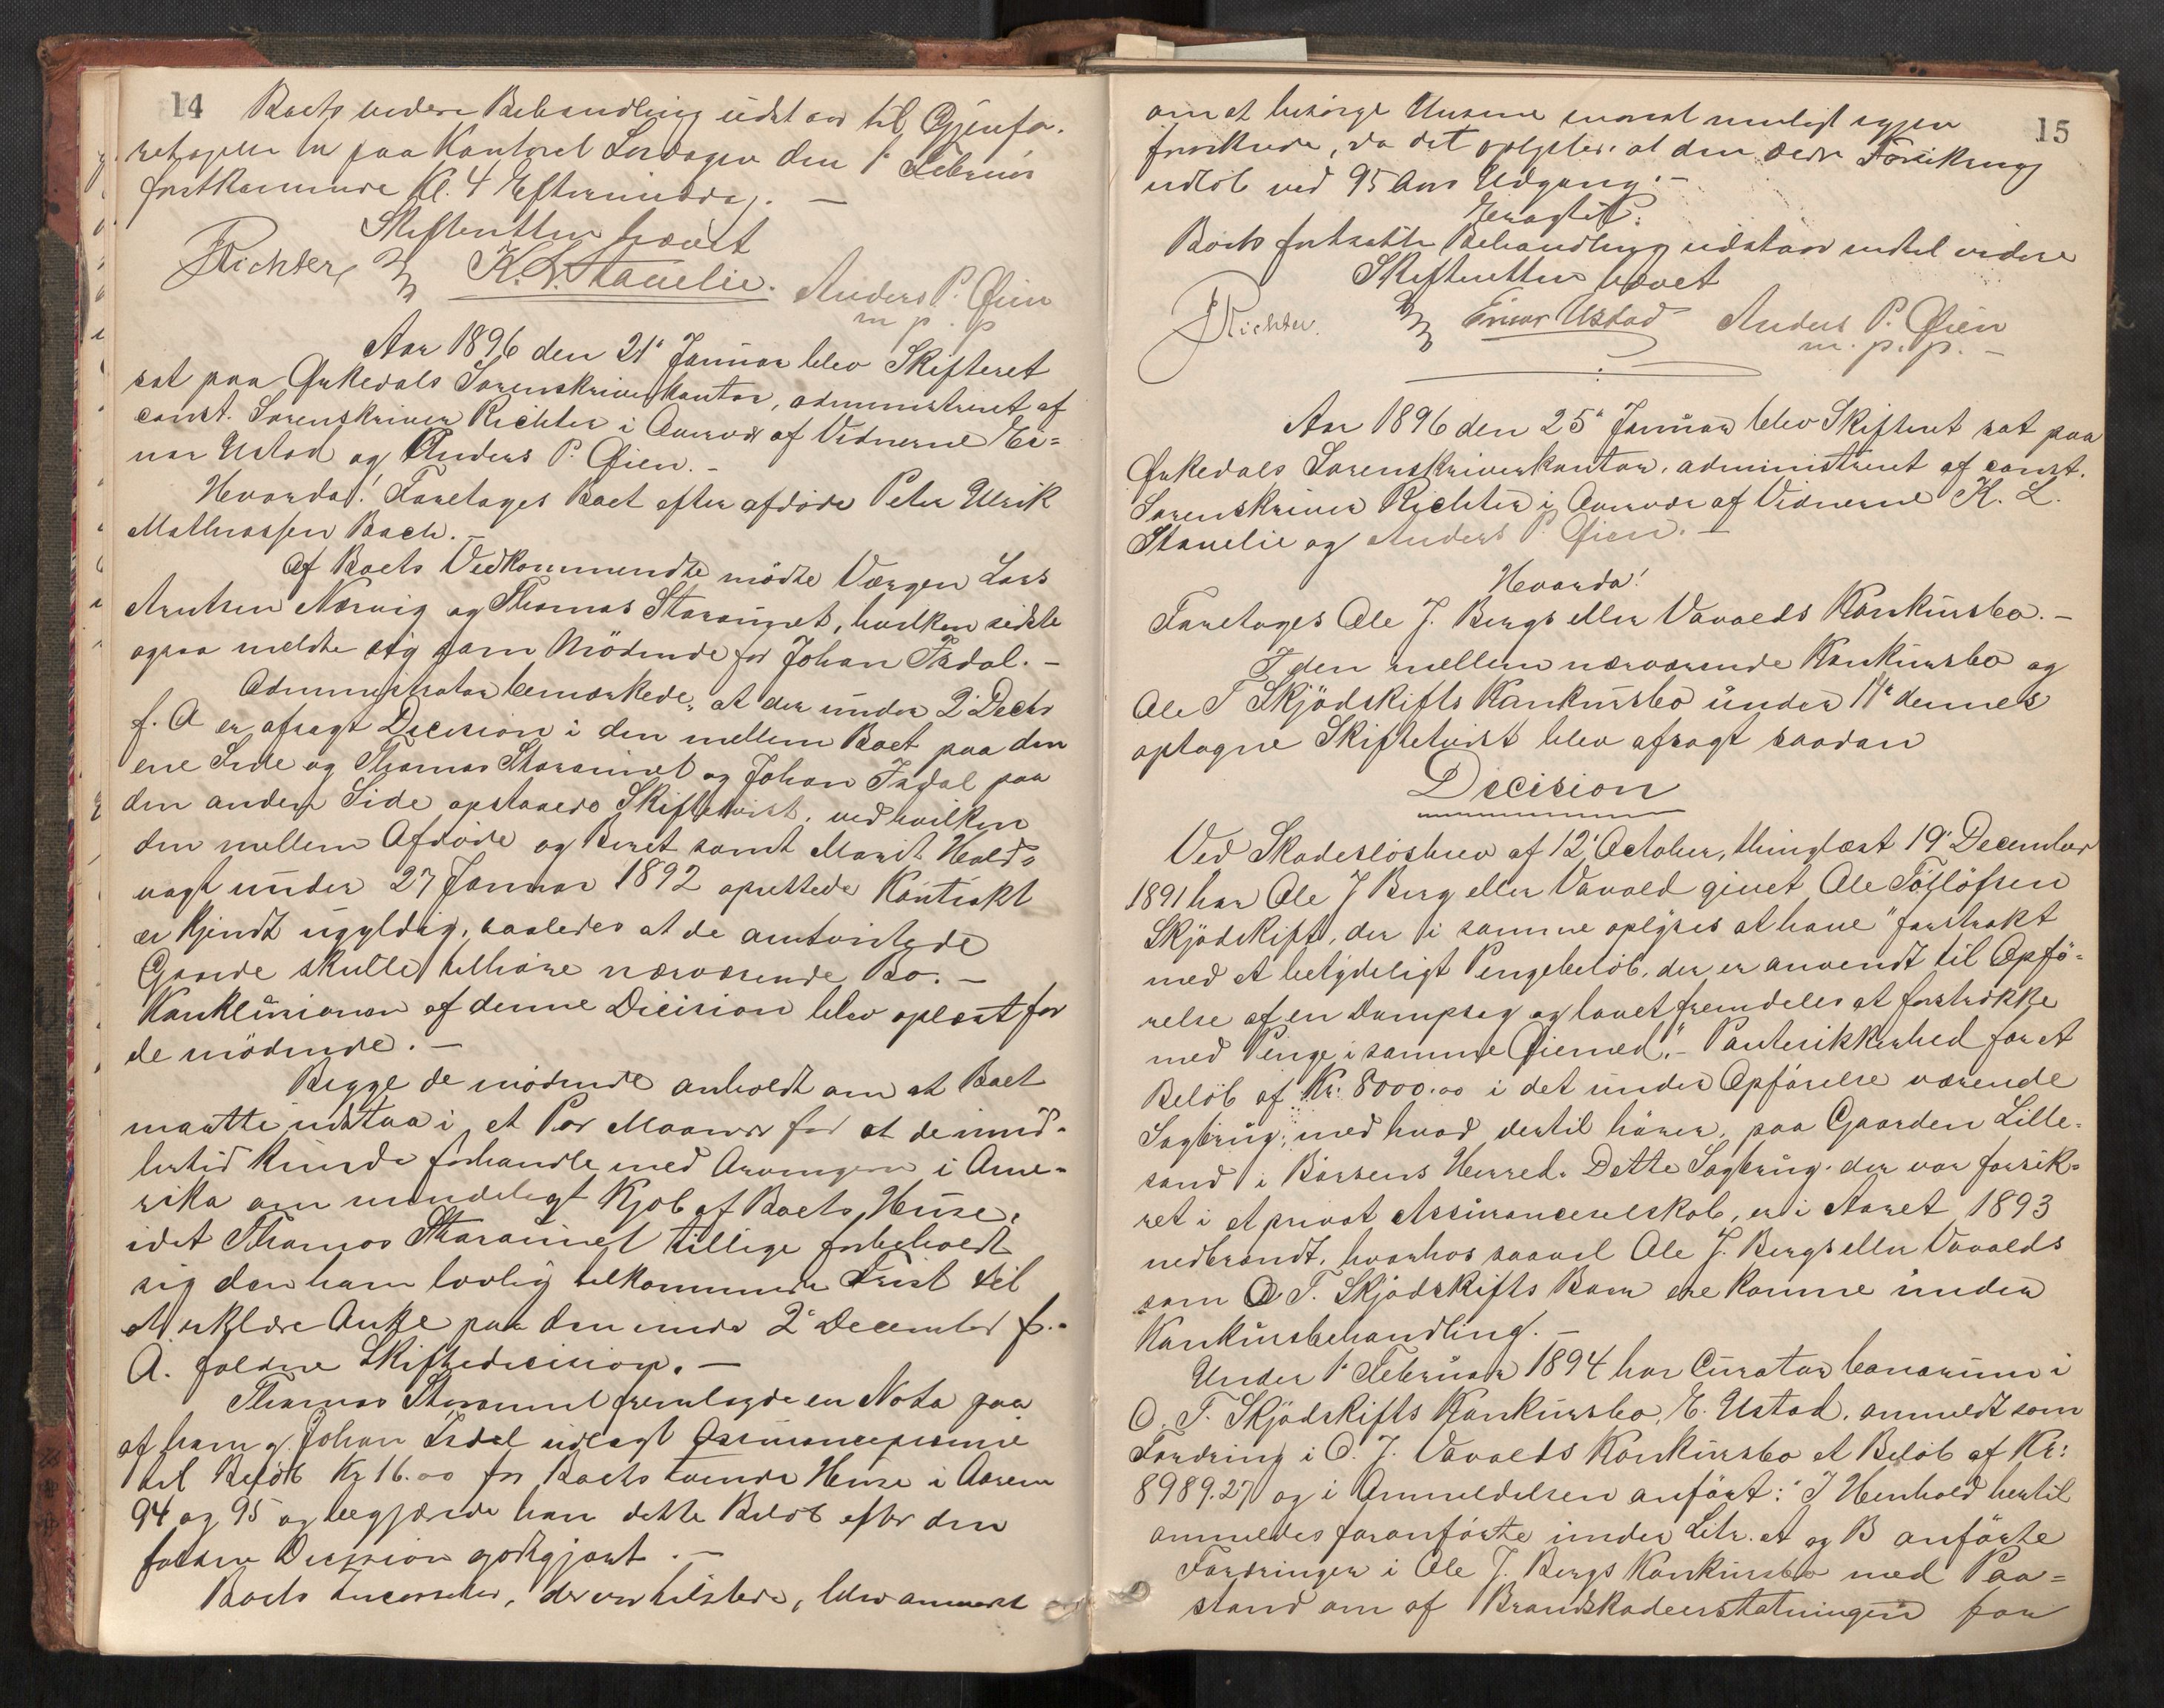 14
Boets videre Behandling udstaar til Gjenfo-
retagelse her paa Kontoret Lørdagen den 1ste Februar
førstkommende Kl. 4 Eftermiddag. —
Skifteretten hævet
JRichter K. L. Stavelie. Anders P. Øien
m p. p
Aar 1896 den 21de Januar blev Skifteret
sat paa Orkedals Sorenskriverkontor, administreret af
const. Sorenskriver Richter i Overvær af Vidnerne Ei=
nar Ustad og Anders P. Øien. –
Hvorda! Foretages Boet efter afdøde Peter Ulrik
Mathiassen Bach. –
Af Boets Vedkommende mødte Værgen Lars
Arntsen Nærvig og Thomas Storaunet, hvilken sidste
ogsaa meldte sig som Mødende for Johan Isdal. –
Administrator bemærkede, at der under 2' Decbr
f. A er afsagt Decision i den mellem Boet paa den
ene Side og Thomas Storaunet og Johan Isdal paa
den anden Side opstaaede Skiftetvist, ved hvilken
den mellem Afdøde og Beret samt Marit Hald=
vagt under 27 Januar 1892 oprettede Kontrakt
er kjendt ugyldig, saaledes at de omtvistede
Gaarde skulle tilhøre nærværende Bo. –
Konklusionen af denne Decision blev oplæst for
de mødende. –
Begge de mødende anholdt om at Boet
maatte udstaa i et Par Maaneder for at de imid-
lertid kunde forhandle med Arvingerne i Ame-
rika om mindeligt Kjøb af Boets Huse,
idet Thomas Storaunet tillige forbeholdt
sig den ham lovlig tilkommende Frist til
at erklære Anke paa den under 2' December f.
A. faldne Skiftedecision. –
Thomas Storaunet fremlagde en Nota paa
af ham og Johan Isdal udlagt Assurancepræmie
til Beløb Kr 16.00 for Boets tvende Huse i Aarene
94 og 95 og begjærede han dette Beløb efter den
faldne Decision godtgjort. –
Boets Incassator, der var tilstede, blev anmodet
15
om at besørge Husene snarest muligt igjen
forsikrede, da det oplystes at den sidste Forsikring
udløb ved 95 Aars Udgang. –
Eragtet:
Boets fortsatte Behandling udstaar indtil videre
Skifteretten hævet
JRichter. Einar Ustad Anders P. Øien
m. p. p. –
Aar 1896 den 25de Januar blev Skifteret sat paa
Orkedals Sorenskriverkontor, administreret af const.
Sorenskriver Richter i Overvær af Vidnerne K. L.
Stavelie og Anders P. Øien. –
Hvorda!
Foretages Ole J. Bergs eller Vavolds Konkursbo. –
I den mellem nærværende Konkursbo og
Ole T Skjødskifts Konkursbo under 14de dennes
optagne Skiftetvist blev afsagt saadan
Decision
Ved Skadesløsbrev af 12' October, thinglæst 19' December
1891 har Ole J Berg eller Vavold givet Ole Tølløfsen
Skjødskift, der i samme oplyses at have "forstrakt
med et betydeligt Pengebeløb, der er anvendt til Opfø-
relse af en Dampsag og lovet fremdeles at forstrække
med Penge i samme Øiemed," – Pantesikkerhed for et
Beløb af Kr: 8000.00 i det under Opførelse værende
Sagbrug, med hvad dertil hører, paa Gaarden Lille-
sand i Børsens Herred. Dette Sagbrug, der var forsik-
ret i et privat Assuranceselskab, er i Aaret 1893
nedbrændt, hvorhos saavel Ole J. Bergs eller Vavolds
som O. T. Skjødskifts Boer ere komne under
Konkursbehandling. –
Under 1' Februar 1894 har Curator bonorum i
O. T. Skjødskifts Konkursbo, E. Ustad, anmeldt som
Fordring i O. J. Vavolds Konkursbo et Beløb af Kr:
8989.27 og i Anmeldelsen anført: "I Henhold hertil
anmeldes foranførte under Litr. A og B anførte
Fordringer i Ole J. Bergs Konkursbo med Paa=
stand om af Brandskadeerstatningen for